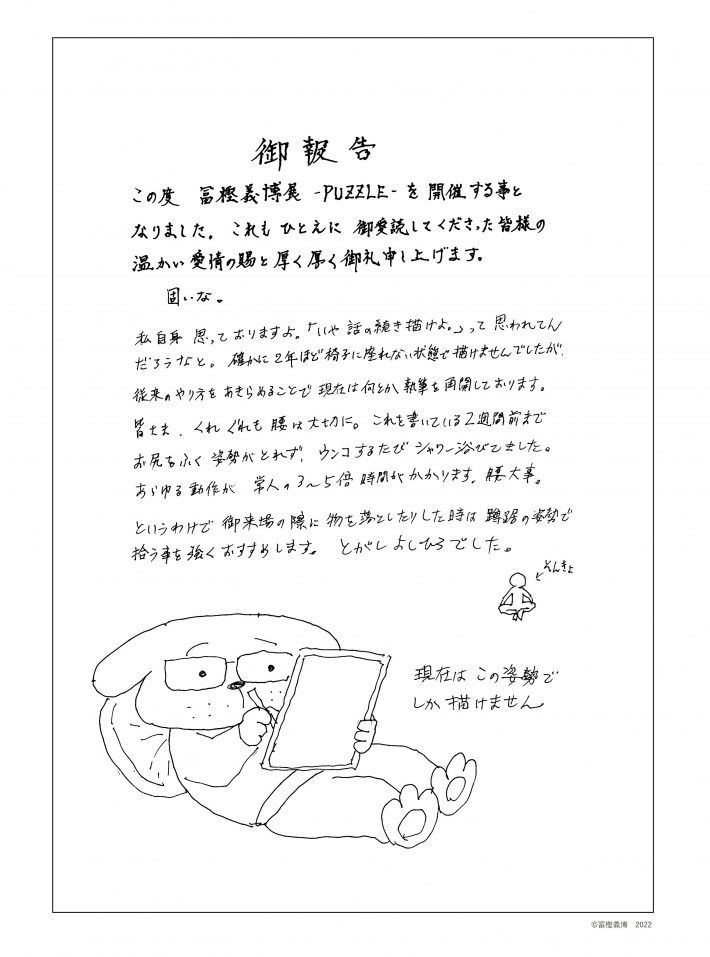 御報告
この度 冨樫義博展 -PUZZLE- を開催する事と
なりました。これもひとえに御愛読してくださった皆様の
温かい愛情の賜と厚く厚く御礼申し上げます。
固いな。
私自身思っておりますよ。「いや話の続き描けよ。」って思われてん
だろうなと。確かに2年ほど椅子に座れない状態で描けませんでしたが、
従来のやり方をあきらめることで現在は何とか執筆を再開しております。
皆さま、くれぐれも腰は大切に。これを書いている2週間前まで
お尻をふく姿勢がとれず、ウンコするたびシャワー浴びてました。
あらゆる動作が常人の3〜5倍時間がかかります。腰大事。
というわけで御来場の際に物を落としたりした時は蹲踞の姿勢で
拾う事を強くおすすめします。とがしよしひろでした。
そんきょ
現在はこの姿勢で
しか描けません
©冨樫義博 2022